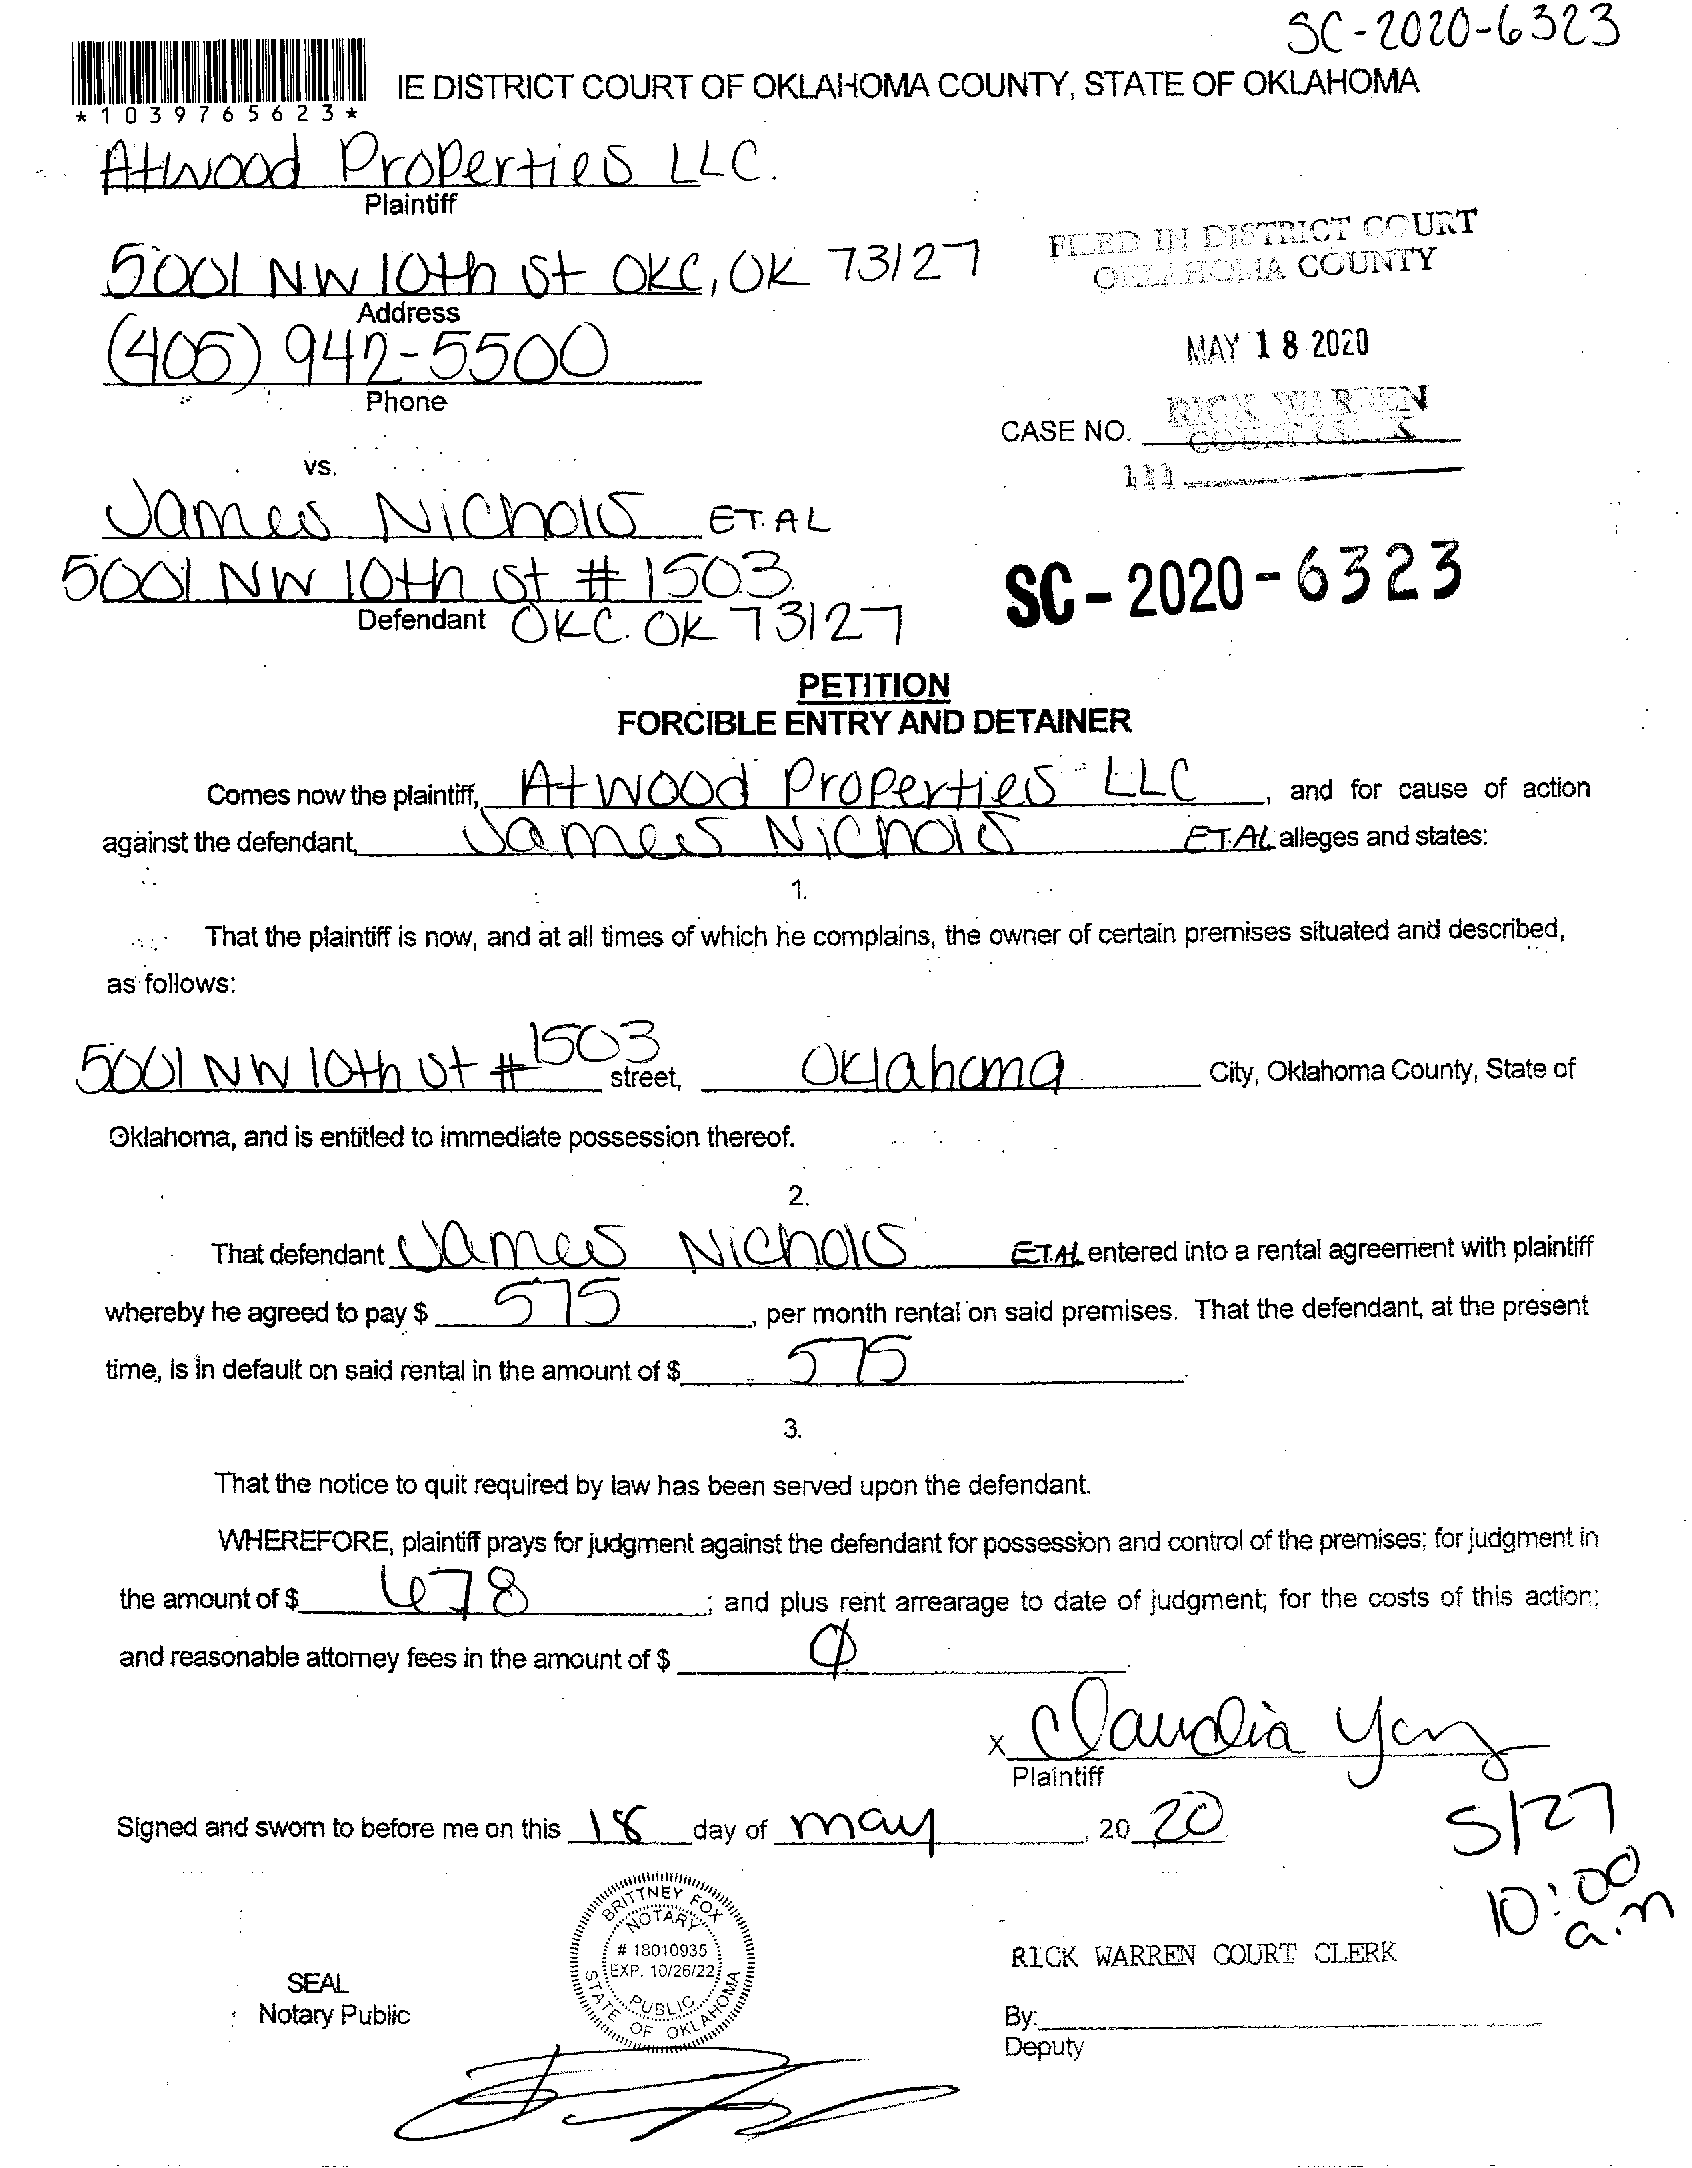 SC-2020-6323
IE DISTRICT COURT OF OKLAHOMA COUNTY, STATE OF OKLAHOMA
*1039765623*
Atwood Properties LLC.
Plaintiff
5001 NW 10th St OKC, OK 73127
Address
FILED IN DISTRICT COURT
OKLAHOMA COUNTY
(405) 942-5500
Phone
MAY 18 2020
RICK WARREN
CASE NO. COURT CLERK
vs.
James Nichols ET.AL
5001 NW 10th St # 1503
Defendant OKC. OK 73127
SC-2020-6323
PETITION
FORCIBLE ENTRY AND DETAINER
Comes now the plaintiff, Atwood Properties LLC, and for cause of action
against the defendant, James Nichols ET.AL alleges and states:
1.
That the plaintiff is now, and at all times of which he complains, the owner of certain premises situated and described,
as follows:
5001 NW 10th St # 1503 street, Oklahoma City, Oklahoma County, State of
Oklahoma, and is entitled to immediate possession thereof.
2.
That defendant James Nichols ET.AL entered into a rental agreement with plaintiff
whereby he agreed to pay $ 575, per month rental on said premises. That the defendant, at the present
time, is in default on said rental in the amount of $ 575.
3.
That the notice to quit required by law has been served upon the defendant.
WHEREFORE, plaintiff prays for judgment against the defendant for possession and control of the premises; for judgment in
the amount of $ 678; and plus rent arrearage to date of judgment; for the costs of this action;
and reasonable attorney fees in the amount of $ Ø.
x Claudia
Plaintiff
Signed and sworn to before me on this 18 day of may, 20 20
5/27
10:00
a.m
BRITTNEY FOX
NOTARY
# 18010935
EXP. 10/26/22
PUBLIC
STATE OF OKLAHOMA
SEAL
Notary Public
RICK WARREN COURT CLERK
By:
Deputy